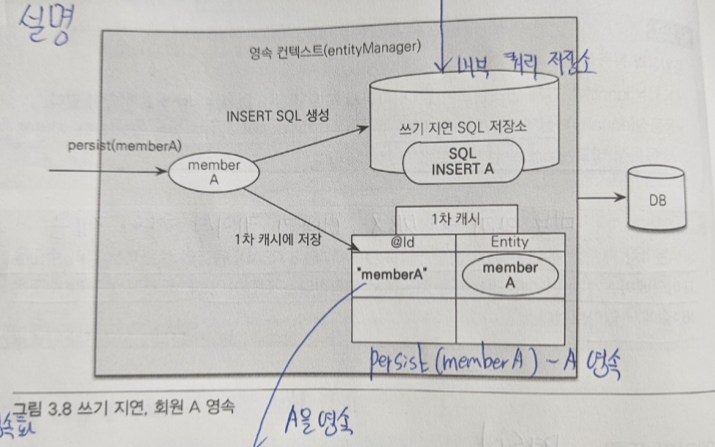 설명
영속 컨텍스트(entityManager)
내부 쿼리 저장소
INSERT SQL 생성
쓰기 지연 SQL 저장소
persist(memberA)
member
A
SQL
INSERT A
DB
1차 캐시
1차 캐시에 저장
@Id
Entity
"memberA"
member
A
persist(memberA) - A 영속
그림 3.8 쓰기 지연, 회원 A 영속
A를 영속